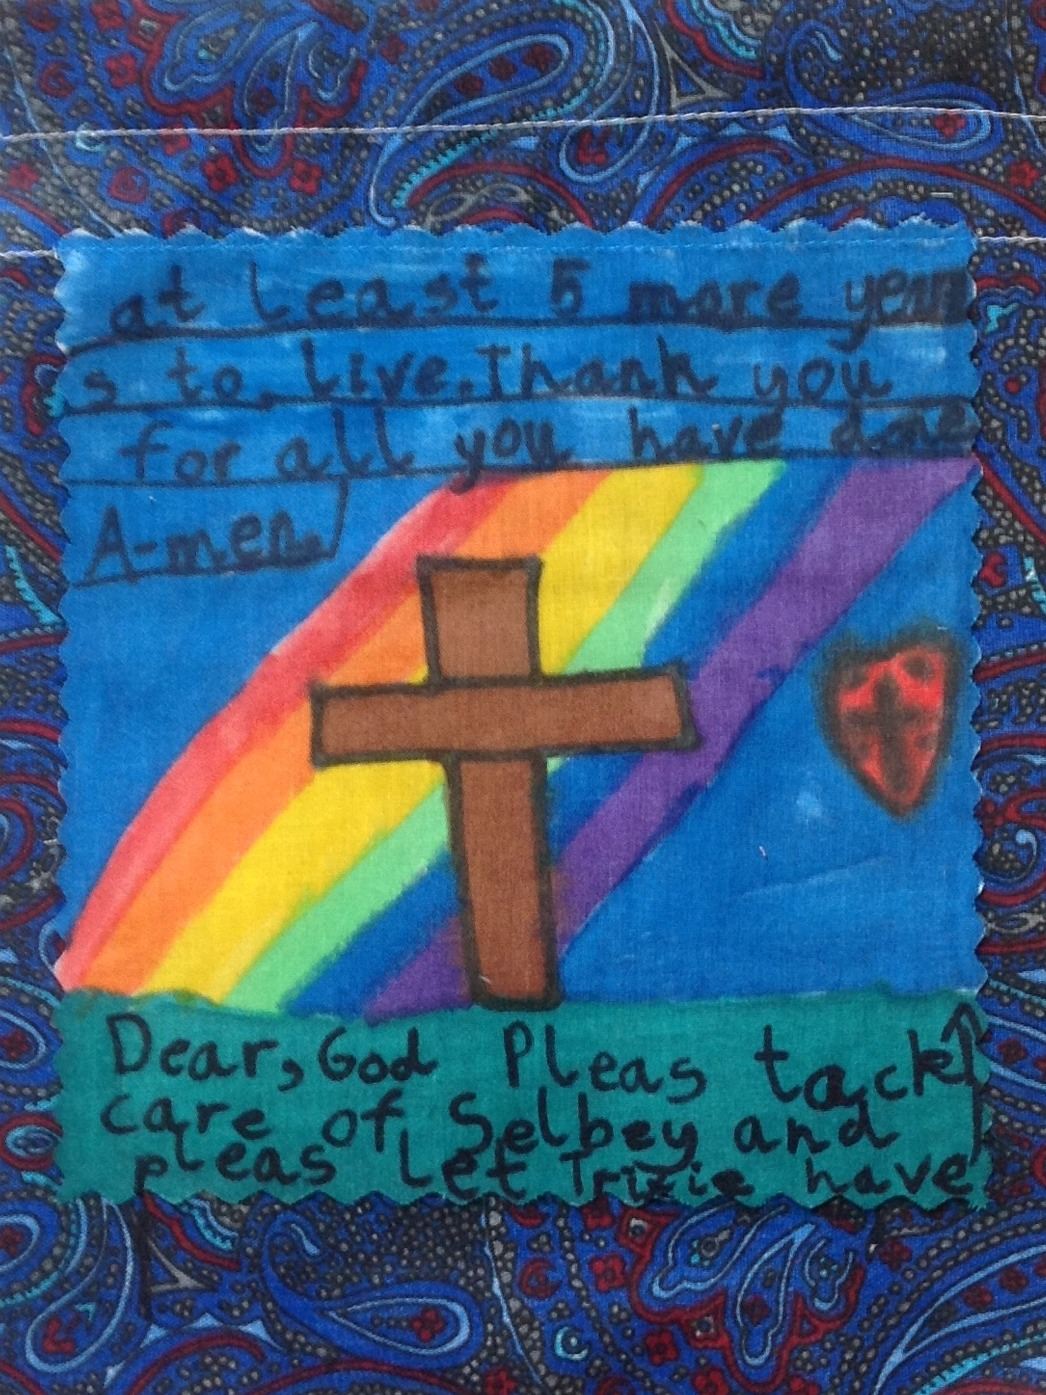 Dear, God Pleas tack
care of Selbey and
pleas let Trixie have
at least 5 more year
s to live. Thank you
for all you have done
A-men